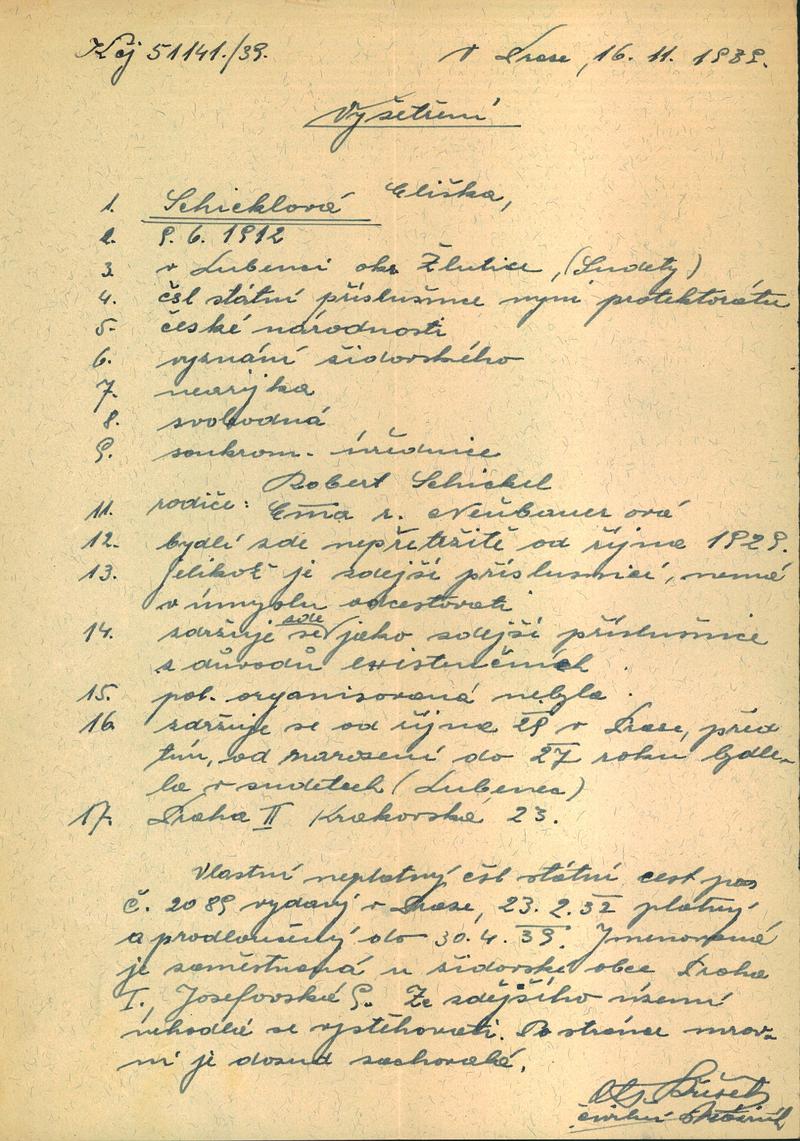 Kčj 51141./39.
V Praze, 16. 11. 1939.
Vyšetření
1. Schicklová Eliška,
2. 9. 6. 1912
3. v Lubenci okr. Žlutice, (Sudety)
4. čsl státní příslušnice nyní protektorátu
5. české národnosti
6. vyznání židovského
7. nearijka
8. svobodná
9. soukrom. úřednice
Robert Schickel
11. rodiče: Ema r. Neübauerová
12. bydlí zde nepřetržitě od října 1929.
13. Jelikož je zdejší příslušnicí, nemá
v úmyslu odcestovati
14. zdržuje se zde jako zdejší příslušnice
z důvodů existenčních.
15. pol. organisovaná nebyla.
16. zdržuje se od října 29 v Praze, před
tím, od narození do 27 roku bydle-
la v sudetech (Lubenec)
17. Praha II Krakovská 23.
Vlastní neplatný čsl státní cest pas
č. 2089 vydaný v Praze, 23. 2. 32 platný
a prodloužený do 30. 4. 39. Jmenovaná
je zaměstnaná u židovské obce Praha
I. Josefovská 9. Ze zdejšího území
nehodlá se vystěhovati. Po stránce mrav-
ní je dosud zachovalá.